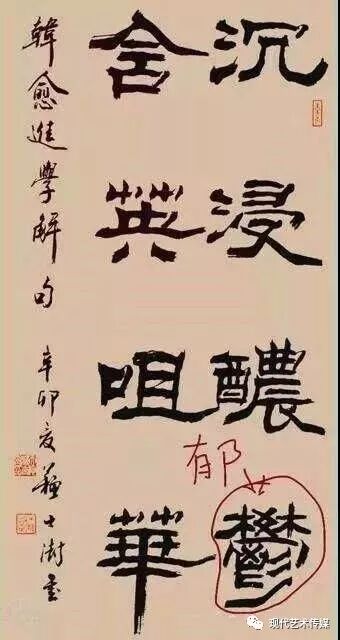 沉浸醲鬱
含英咀華
韓愈進學解句 辛卯夏蘇士澍書
郁
现代艺术传媒